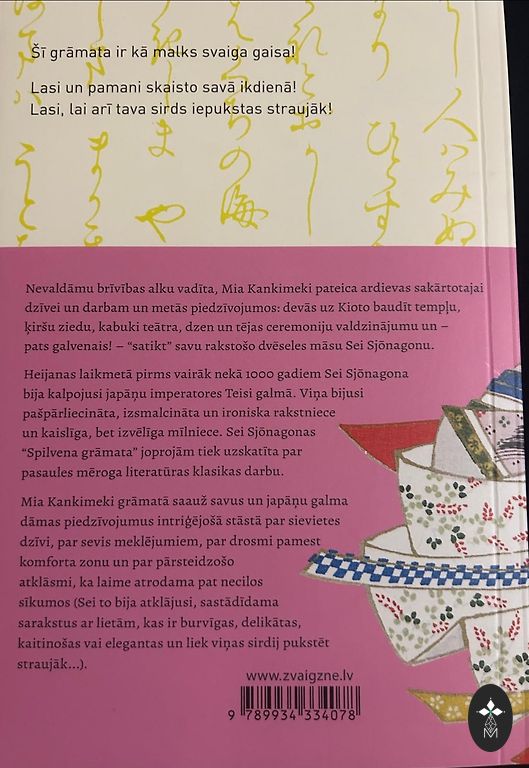 Šī grāmata ir kā malks svaiga gaisa!
Lasi un pamani skaisto savā ikdienā!
Lasi, lai arī tava sirds iepukstas straujāk!
Nevaldāmu brīvības alku vadīta, Mia Kankimeki pateica ardievas sakārtotajai
dzīvei un darbam un metās piedzīvojumos: devās uz Kioto baudīt tempļu,
ķiršu ziedu, kabuki teātra, dzen un tējas ceremoniju valdzinājumu un –
pats galvenais! – “satikt” savu rakstošo dvēseles māsu Sei Sjōnagonu.
Heijanas laikmetā pirms vairāk nekā 1000 gadiem Sei Sjōnagona
bija kalpojusi japāņu imperatores Teisi galmā. Viņa bijusi
pašpārliecināta, izsmalcināta un ironiska rakstniece
un kaislīga, bet izvēlīga mīlniece. Sei Sjōnagonas
“Spilvena grāmata” joprojām tiek uzskatīta par
pasaules mēroga literatūras klasikas darbu.
Mia Kankimeki grāmatā saauž savus un japāņu galma
dāmas piedzīvojumus intriģējošā stāstā par sievietes
dzīvi, par sevis meklējumiem, par drosmi pamest
komforta zonu un par pārsteidzošo
atklāsmi, ka laime atrodama pat necilos
sīkumos (Sei to bija atklājusi, sastādīdama
sarakstus ar lietām, kas ir burvīgas, delikātas,
kaitinošas vai elegantas un liek viņas sirdij pukstēt
straujāk...).
www.zvaigzne.lv
9 789934 334078